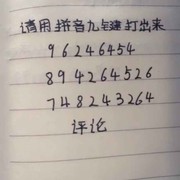 请用拼音九键打出来
96246454
894264526
748243264
评论